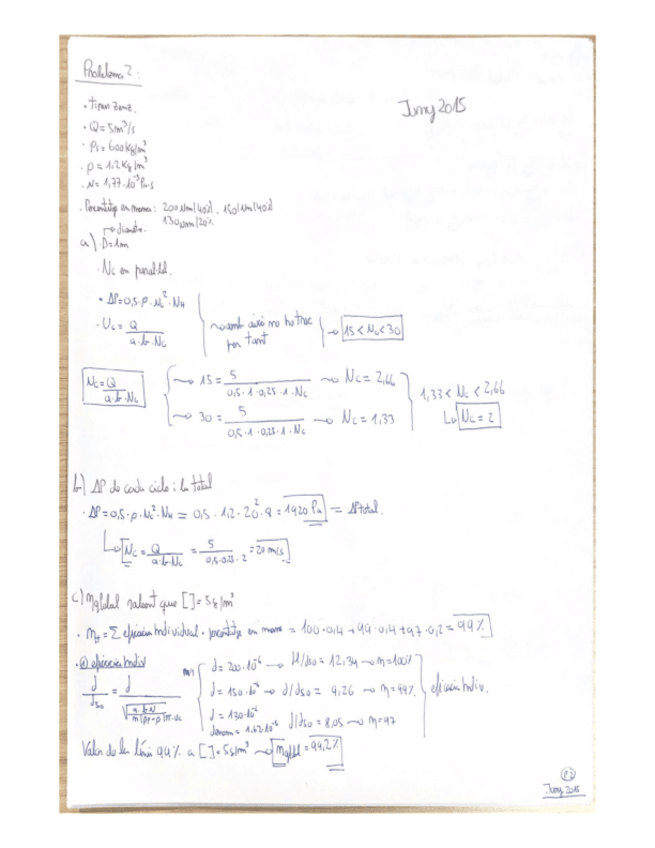 Problema 2:
Juny 2015
· Tipus Zenz.
· Q = 5 m³/s
· ρs = 600 kg/m³
· ρ = 1,2 kg/m³
· N = 1,77·10⁻⁵ Pa·s
· Percentatge en massa: 200 µm (40%), 150 µm (40%)
130 µm (20%)
↱ diametre.
a) D = 1m
· Nc en paral·lel.
· ΔP = 0,5·ρ·Nc²·NH
· Uc = Q / a·b·Nc
~> amb això no ho trec per tant
→ 15 < Nc < 30
Nc = Q / a·b·Nc
~> 15 = 5 / 0,5·1·0,25·1·Nc ~> Nc = 2,66
~> 30 = 5 / 0,5·1·0,25·1·Nc ~> Nc = 1,33
1,33 < Nc < 2,66
↳ Nc = 2
b) ΔP de cada cicló i la total
· ΔP = 0,5·ρ·Nc²·NH = 0,5·1,2·20²·8 = 1920 Pa = ΔPtotal.
↳ Nc = Q / a·b·Nc = 5 / 0,5·0,25·2 = 20 m/s
c) ηglobal sabent que [ ] = 5g/m³
· ηo = Σ eficàcia individual · percentatge en massa = 100·0,4 + 99·0,4 + 97·0,2 = 99%
· eficàcia indiv
d / d50 = d
d = 200·10⁻⁶ → d/d50 = 12,34 → η = 100%
d = 150·10⁻⁶ → d/d50 = 9,26 → η = 99%
d = 130·10⁻⁶ d/d50 = 8,05 → η = 97
denom = 1,62·10⁻⁵
eficàcia indiv.
Valor de la línia 99% a [ ] = 5g/m³ → ηglobal = 99,2%
P2
Juny 2015